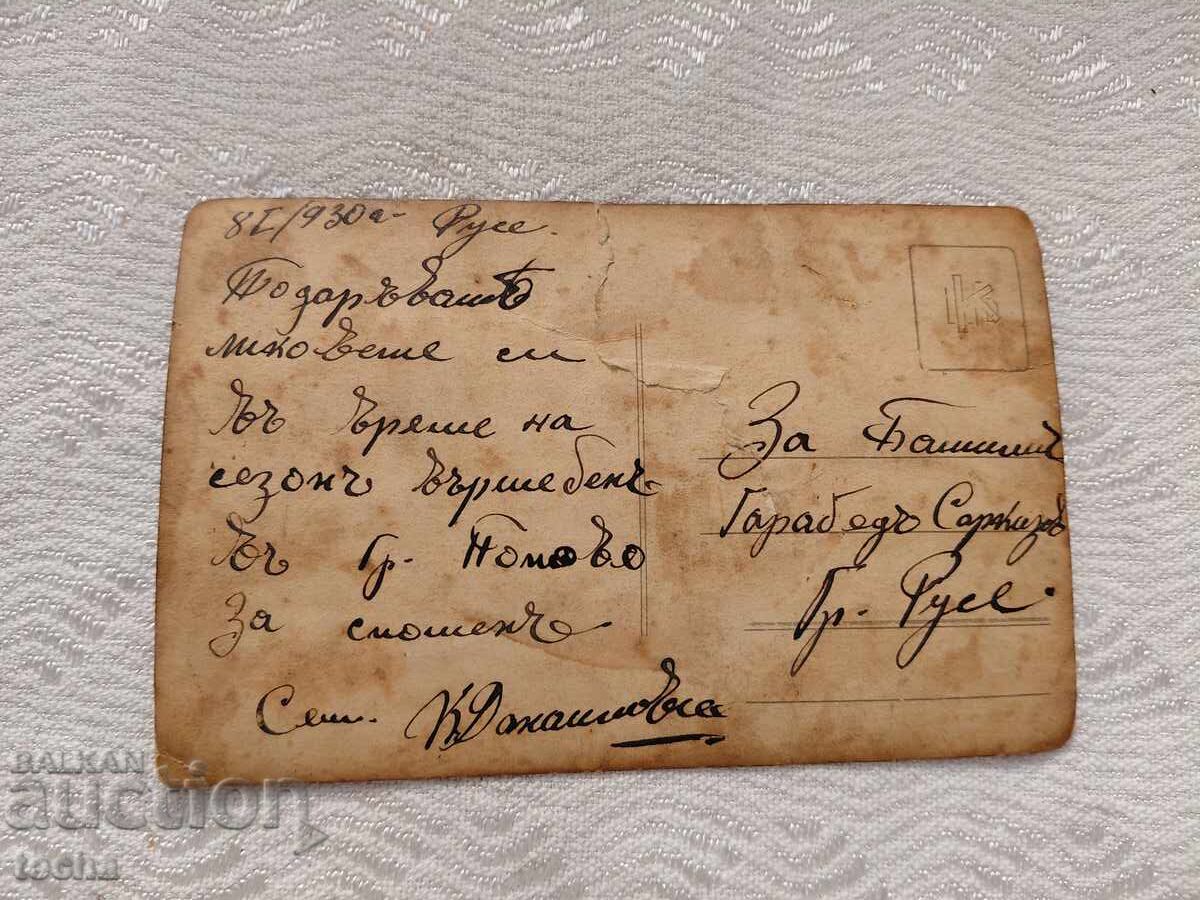 8I/930г. Русе.
Подаръваме
ликовете си
въ време на
сезонъ вършебенъ
въ Гр. Попово
За споменъ
Сем.
За
Гарабедъ Саркизов
Гр. Русе.
BALKAN
auction
tocha